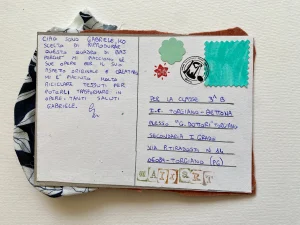 CIAO SONO GABRIELE, HO
SCELTO DI RIPRODURRE
QUESTO QUADRO DI BAJ
PERCHE' MI PIACCIONO LE
SUE OPERE PER IL SUO
ASPETTO ORIGINALE E CREATIVO
MI È PIACIUTO MOLTO
RICICLARE TESSUTI PER
POTERLI TRASFORMARE IN
OPERE. TANTI SALUTI
GABRIELE.
PER LA CLASSE 3ª B
I.C. TORGIANO-BETTONA
PLESSO "G. DOTTORI" TORGIANO
SECONDARIA I GRADO
VIA P. TIRADOSSI N. 14
06089-TORGIANO (PG)
MAIL ART